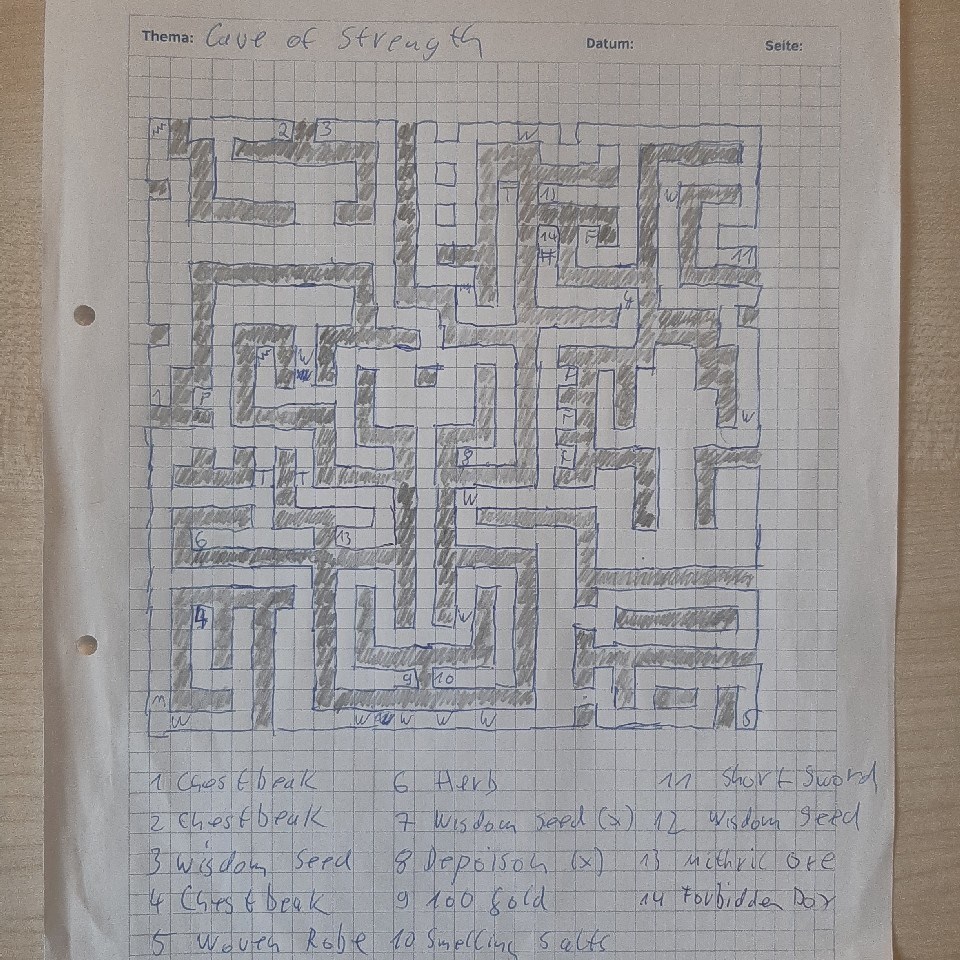 Thema: Cave of Strength Datum: Seite:
2 3 W
T 13 W
14 F
# 11
4
W
1 F F W
F
8 F
T T W
6 13
4 W
9 10
W W W W W 5
1 Chestbeak 6 Herb 11 Short Sword
2 Chestbeak 7 Wisdom Seed (x) 12 Wisdom Seed
3 Wisdom Seed 8 Depoison (x) 13 Mithril Ore
4 Chestbeak 9 100 Gold 14 Forbidden Box
5 Woven Robe 10 Smelling Salts